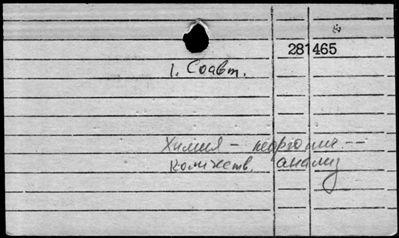 281465
1. Соавт.
Химия – неорганич. --
количеств. анализ